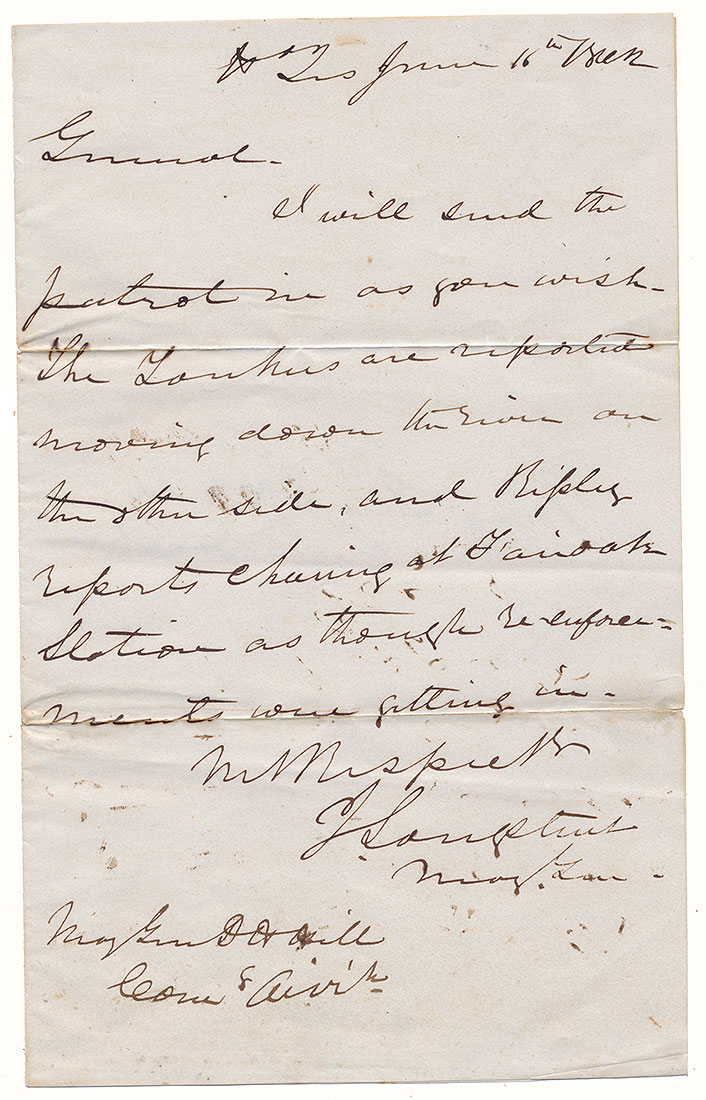 Hd Qrs June 16th 1862
General.
I will send the
patrol in as you wish.
The Yankees are reported
moving down the river on
the other side, and Ripley
reports cheering at Fairoaks
Station as though re-enforce-
ments were getting in.
Respect
J. Longstreet
Maj. Gen.
Maj Gen D H Hill
Comg Divin